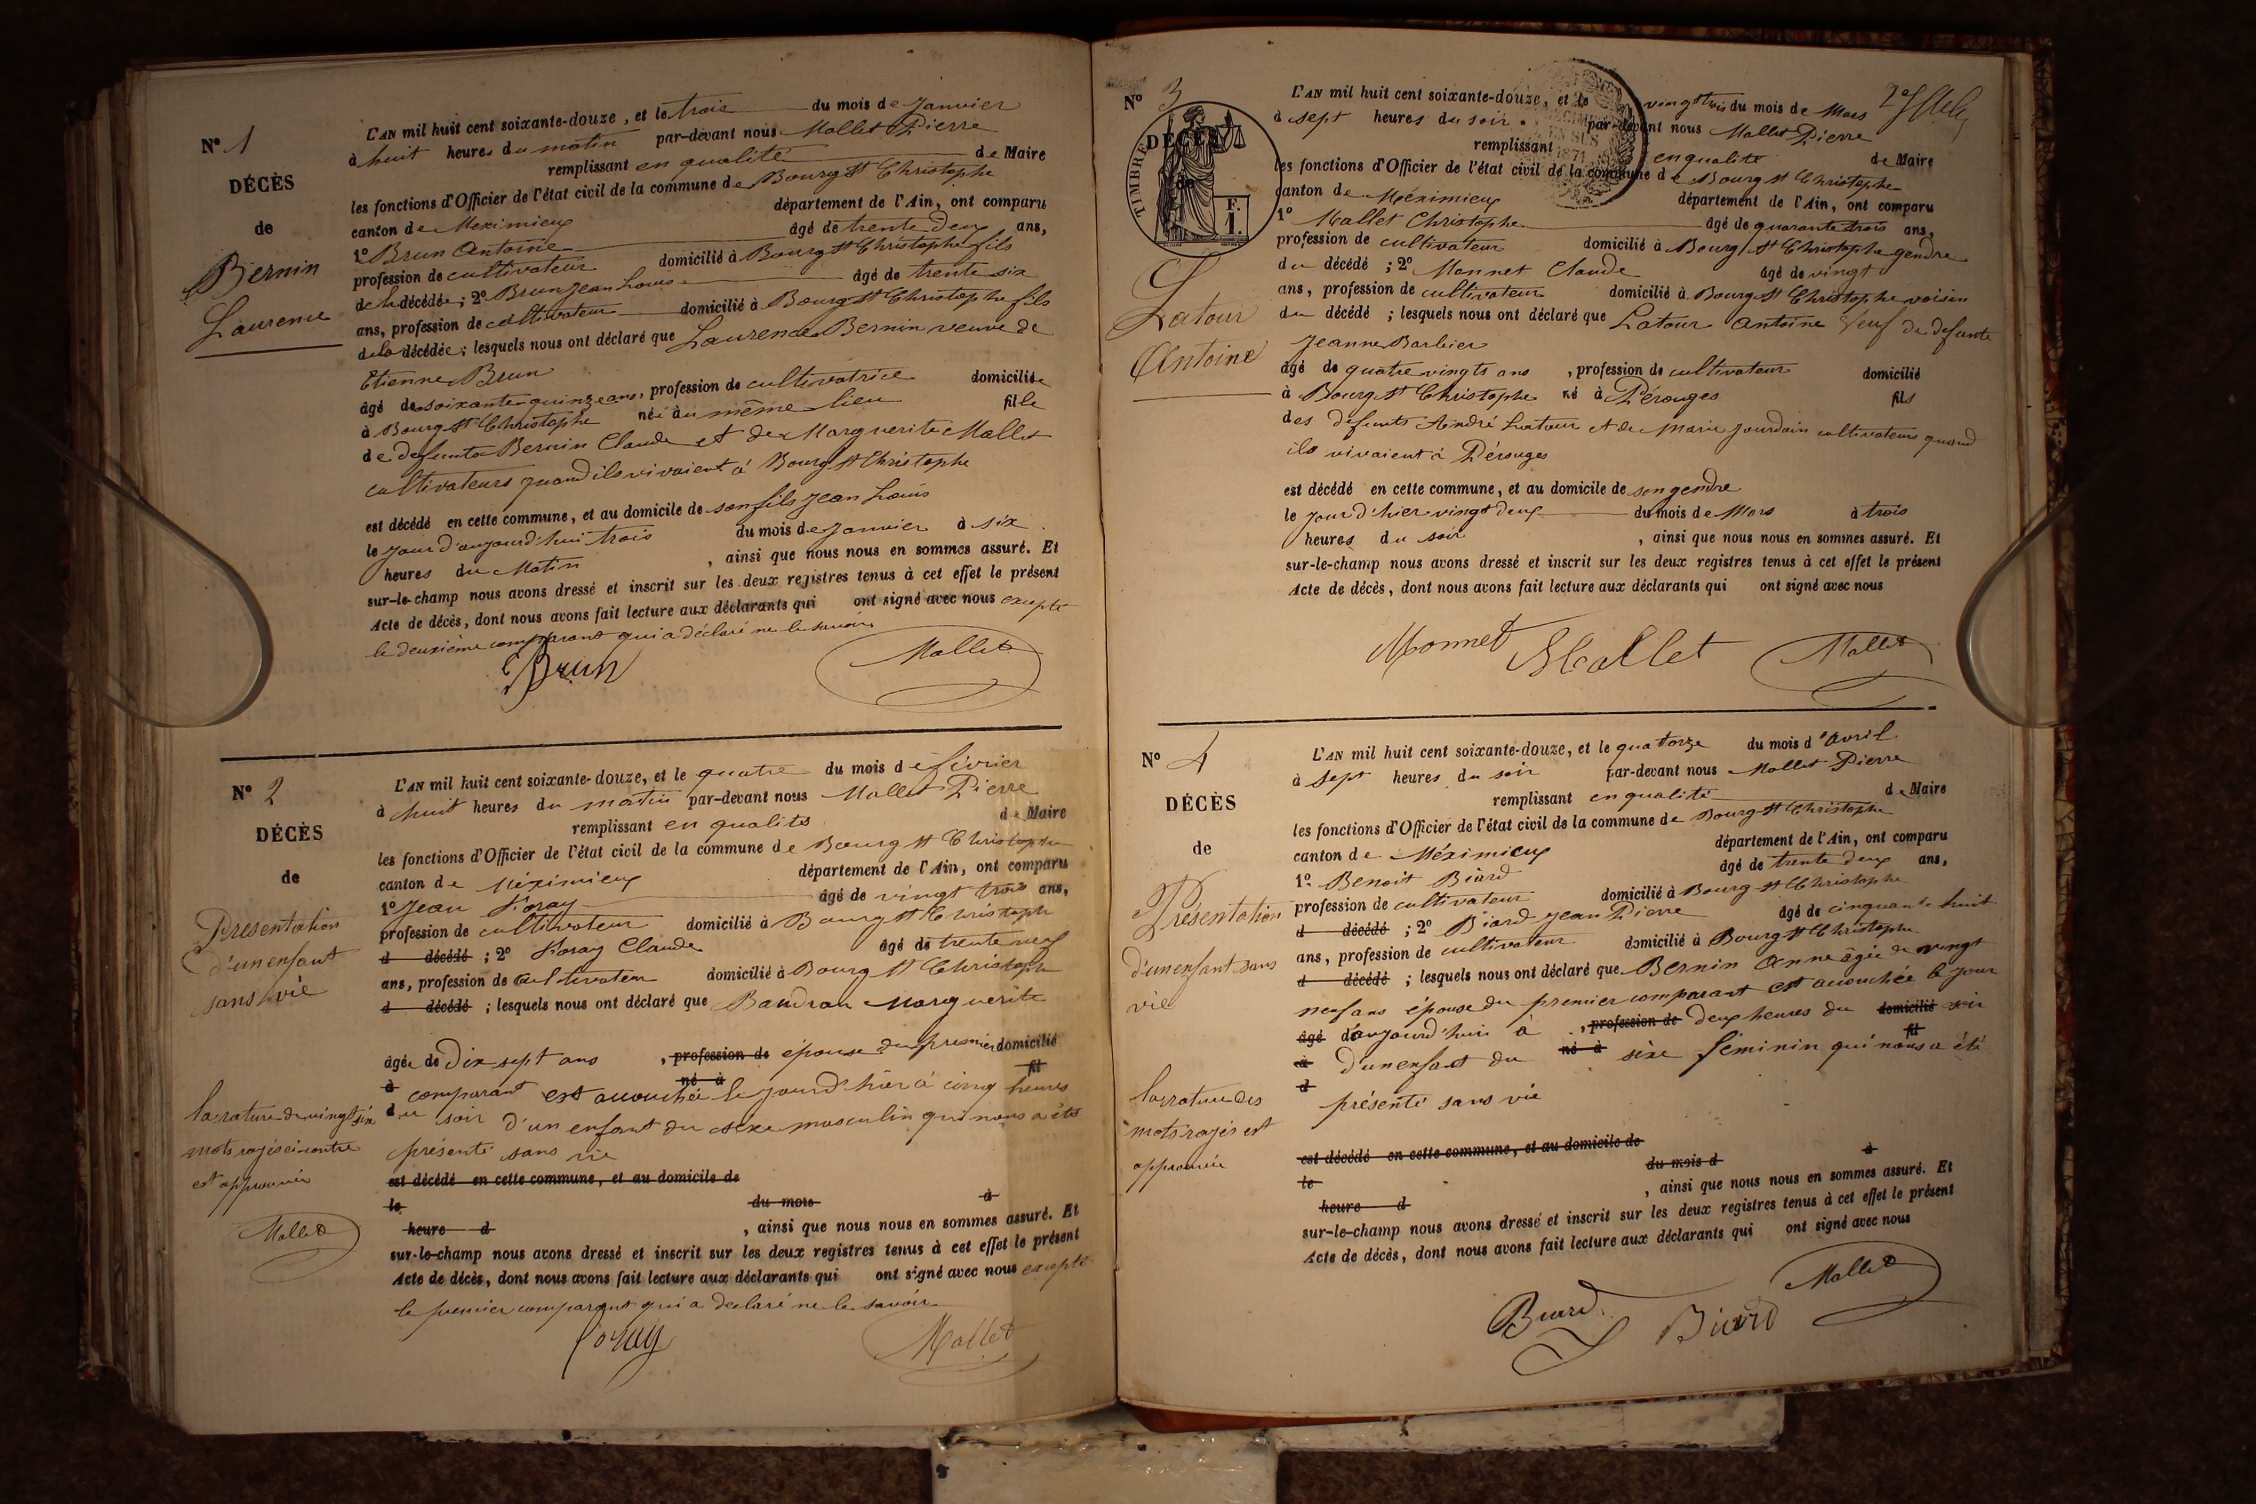 N° 1
DÉCÈS
de
Bernin
Laurence
L'AN mil huit cent soixante-douze, et le trois du mois de Janvier
à huit heures du matin par-devant nous Mallet Pierre
remplissant en qualité de Maire
les fonctions d'Officier de l'état civil de la commune de Bourg St Christophe
canton de Meximieux département de l'Ain, ont comparu
1° Brun Antoine âgé de trente deux ans,
profession de cultivateur domicilié à Bourg St Christophe fils
de la décédée ; 2° Brun Jean Louis âgé de trente six
ans, profession de cultivateur domicilié à Bourg St Christophe fils
de la décédée ; lesquels nous ont déclaré que Laurence Bernin veuve de
Etienne Brun
âgé de soixante quinze ans, profession de cultivatrice domiciliée
à Bourg St Christophe née à u même lieu fille
de defunts Bernin Claude et de Marguerite Mallet
cultivateurs quand ils vivaient à Bourg St Christophe
est décédé en cette commune, et au domicile de son fils Jean Louis
le jour d'aujourd'hui trois du mois de Janvier à six
heures du Matin , ainsi que nous nous en sommes assuré. Et
sur-le-champ nous avons dressé et inscrit sur les deux registres tenus à cet effet le présent
Acte de décès, dont nous avons fait lecture aux déclarants qui ont signé avec nous excepté
le deuxième comparant qui a déclaré ne le savoir
Brun Mallet
N° 2
DÉCÈS
de
Présentation
d'un enfant
sans vie
L'AN mil huit cent soixante-douze, et le quatre du mois de février
à huit heures du matin par-devant nous Mallet Pierre
remplissant en qualité de Maire
les fonctions d'Officier de l'état civil de la commune de Bourg St Christophe
canton de Méximieux département de l'Ain, ont comparu
1° Jean Foray âgé de vingt trois ans,
profession de cultivateur domicilié à Bourg St Christophe
d décédé ; 2° Foray Claude âgé de trente neuf
ans, profession de cultivateur domicilié à Bourg St Christophe
d décédé ; lesquels nous ont déclaré que Baudran Marguerite
âgée de Dix sept ans , profession de épouse du premier domicilié
à comparant né à est accouchée le jour d'hier à cinq heures fil
du soir d'un enfant du sexe masculin qui nous a été
présenté sans vie
est décédé en cette commune, et au domicile de
le du mois à
heure d , ainsi que nous nous en sommes assuré. Et
sur-le-champ nous avons dressé et inscrit sur les deux registres tenus à cet effet le présent
Acte de décès, dont nous avons fait lecture aux déclarants qui ont signé avec nous excepté
le premier comparant qui a declaré ne le savoir
la rature de vingt six
mots rayés ci contre
est approuvée
Mallet
foray Mallet
N° 3
TIMBRE
F.
1.
DÉCÈS
de
Latour
Antoine
L'AN mil huit cent soixante-douze, et le vingt trois du mois de Mars
à sept heures du soir par-devant nous Mallet Pierre
remplissant en qualité de Maire
les fonctions d'Officier de l'état civil de la commune de Bourg St Christophe
canton de Méximieux département de l'Ain, ont comparu
1° Mallet Christophe âgé de quarante trois ans,
profession de cultivateur domicilié à Bourg St Christophe gendre
du décédé ; 2° Monnet Claude âgé de vingt
ans, profession de cultivateur domicilié à Bourg St Christophe voisin
du décédé ; lesquels nous ont déclaré que Latour Antoine veuf de defunte
Jeanne Barbier
âgé de quatre vingts ans , profession de cultivateur domicilié
à Bourg St Christophe né à Pérouges fils
des défunts André Latour et de Marie Jourdain cultivateurs quand
ils vivaient à Pérouges
est décédé en cette commune, et au domicile de son gendre
le jour d'hier vingt deux du mois de Mars à trois
heures du soir , ainsi que nous nous en sommes assuré. Et
sur-le-champ nous avons dressé et inscrit sur les deux registres tenus à cet effet le présent
Acte de décès, dont nous avons fait lecture aux déclarants qui ont signé avec nous
Monnet Mallet Mallet
N° 4
DÉCÈS
de
Présentation
d'un enfant sans
vie
L'AN mil huit cent soixante-douze, et le quatorze du mois d'avril
à sept heures du soir par-devant nous Mallet Pierre
remplissant en qualité de Maire
les fonctions d'Officier de l'état civil de la commune de Bourg St Christophe
canton de Méximieux département de l'Ain, ont comparu
1° Benoit Biard âgé de trente deux ans,
profession de cultivateur domicilié à Bourg St Christophe
d décédé ; 2° Biard Jean Pierre âgé de cinquante huit
ans, profession de cultivateur domicilié à Bourg St Christophe
d décédé ; lesquels nous ont déclaré que Bernin Anne âgée de vingt
neuf ans épouse du premier comparant est accouchée le jour
âgé d'aujourd'hui à , profession de deux heures du domicilié soir
à d'un enfant du né à sexe féminin qui nous a été fil
d présenté sans vie
est décédé en cette commune, et au domicile de
le du mois d à
heure d , ainsi que nous nous en sommes assuré. Et
sur-le-champ nous avons dressé et inscrit sur les deux registres tenus à cet effet le présent
Acte de décès, dont nous avons fait lecture aux déclarants qui ont signé avec nous
la rature des
mots rayés est
approuvée
Biard Biard Mallet